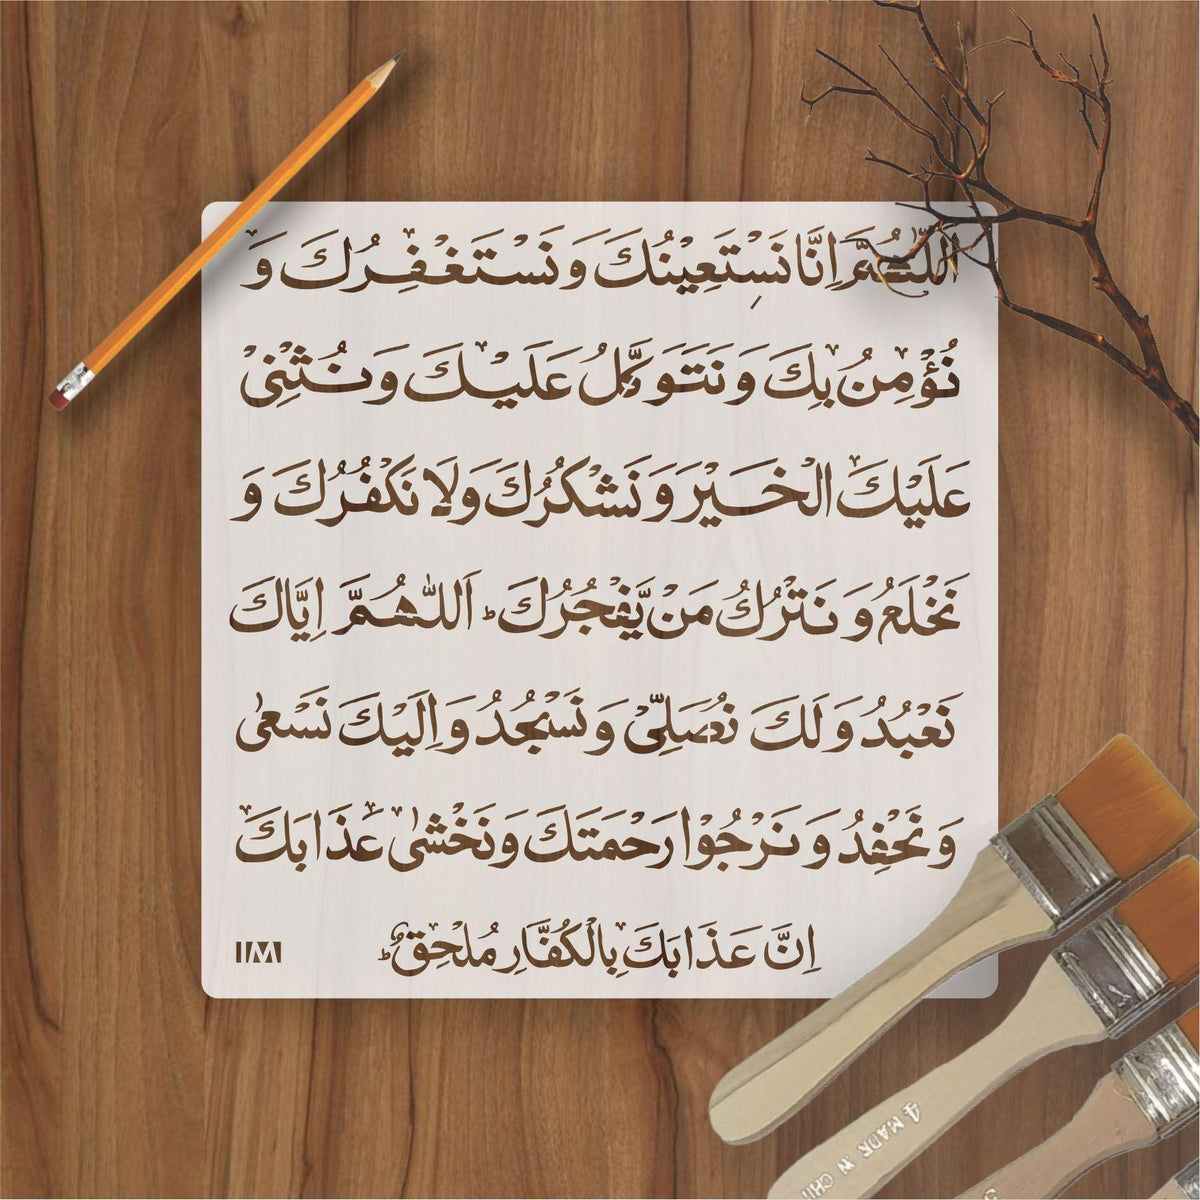 اَللّٰهُمَّ اِنَّا نَسْتَعِيْنُكَ وَ نَسْتَغْفِرُكَ وَ
نُؤْمِنُ بِكَ وَ نَتَوَكَّلُ عَلَيْكَ وَ نُثْنِيْ
عَلَيْكَ الْخَيْرَ وَ نَشْكُرُكَ وَلَا نَكْفُرُكَ وَ
نَخْلَعُ وَ نَتْرُكُ مَنْ يَّفْجُرُكَ ؕ اَللّٰهُمَّ اِيَّاكَ
نَعْبُدُ وَ لَكَ نُصَلِّيْ وَ نَسْجُدُ وَ اِلَيْكَ نَسْعٰى
وَ نَحْفِدُ وَ نَرْجُوْا رَحْمَتَكَ وَ نَخْشٰى عَذَابَكَ
اِنَّ عَذَابَكَ بِالْكُفَّارِ مُلْحِقٌ ؕ
IMI
4 MADE IN CHI